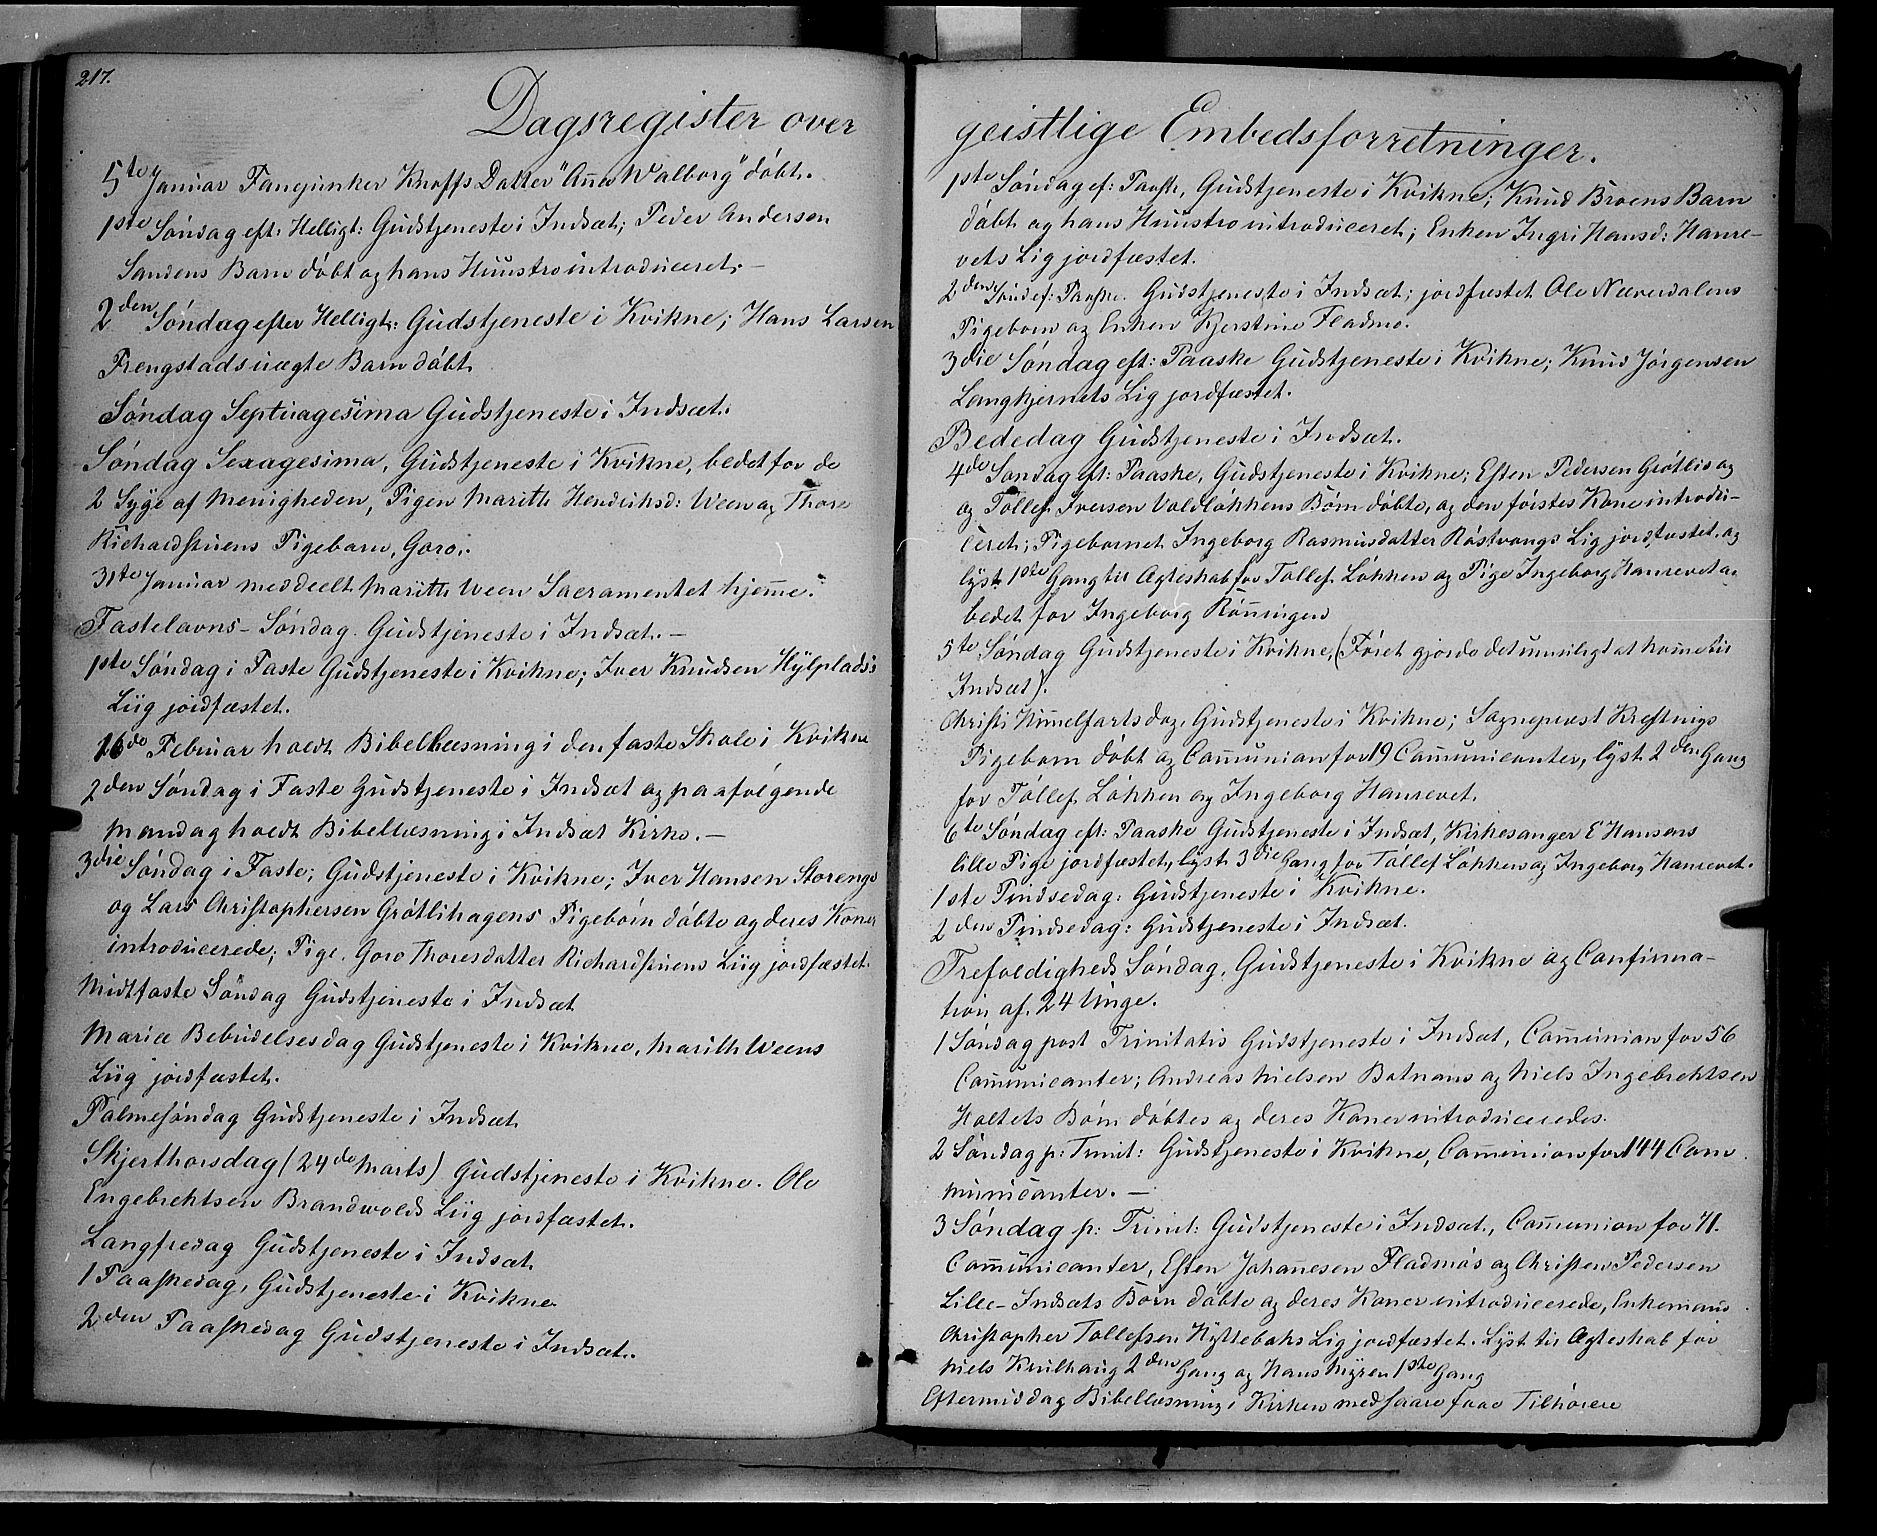 217.
Dagsregister over
5te Januar Fanejunker Knoffs Datter "Anna Walborg" döbt.
1ste Söndag eft: Helligt: Gudstjeneste i Indsæt; Peder Andersen
Sandens Barn döbt og hans Huustro introduceret. –
2den Söndag efter Helligt: Gudstjeneste i Kvikne; Hans Larsen
Frengstads uægte Barn döbt.
Söndag Septuagesima Gudstjeneste i Indsæt.
Söndag Sexagesima, Gudstjeneste i Kvikne, bedet for de
2 Syge af Menigheden, Pigen Marith Hendriksd: Ween og Thore
Richardstuens Pigebarn, Goro.
31te Januar meddeelt Marith Ween Sacramentet hjeme.
Fastelavns-Söndag. Gudstjeneste i Indsæt. –
1ste Söndag i Faste Gudstjeneste i Kvikne; Iver Knudsen Hylplads's
Liig jordfæstet.
16de Februar hoedt Bibellæsning i den faste Skole i Kvikne
2den Söndag i Faste Gudstjeneste i Indsæt og paafölgende
Mandag hoedt Bibellæsning i Indsæt Kirke. –
3die Söndag i Faste; Gudstjeneste i Kvikne; Iver Hansen Storengs
og Lars Christophersen Grötlihagens Pigebörn döbte og deres Koner
introducerede; Pige. Goro Thoresdatter Richardstuens Liig jordfæstet.
Midtfaste Söndag Gudstjeneste i Indsæt
Mariæ Bebudelsesdag Gudstjeneste i Kvikne, Marith Weens
Liig jordfæstet.
Palmesöndag Gudstjeneste i Indsæt
Skjerthorsdag (24de Marts) Gudstjeneste i Kvikne. Ole
Engebrechtsen Brandvolds Liig jordfæstet.
Langfredag Gudstjeneste i Indsæt
1 Paaskedag, Gudstjeneste i Kvikne
2den Paaskedag Gudstjeneste i Indsæt.
geistlige Embedsforretninger.
1ste Söndag ef: Paaske, Gudstjeneste i Kvikne; Knud Broens Barn
döbt og hans Huustro introduceret; Enken Ingri Hansd: Hanre-
vets Lig jordfæstet.
2den Sönd ef: Paaske. Gudstjeneste i Indsæt; jordfæstet Ole Næverdalens
Pigebarn og Enken Kjerstine Fladmo.
3die Söndag eft: Paaske Gudstjeneste i Kvikne; Knud Jörgensen
Langkjernets Lig jordfæstet.
Bededag Gudstjeneste i Indsæt.
4de Söndag eft: Paaske, Gudstjeneste i Kvikne; Esten Pedersen Grötlis og
og Tollef Iversen Voldlökkens Börn döbte, og den förstes Kone introdu-
ceret; Pigebarnet Ingeborg Rasmusdatter Röstvangs Lig jordfæstet, og
lyst 1ste Gang til Ægteskab for Tollef Lökken og Pige Ingeborg Hanrevet og
bedet for Ingeborg Rönningen
5te Söndag Gudstjeneste i Kvikne, (Föret gjorde det umuligt at kome til
Indsæt).
Christi Himmelfartsdag. Gudstjeneste i Kvikne; Sognepræst Krefting's
Pigebarn döbt og Communion for 19 Communicanter, lyst 2den Gang
for Tollef Lökken og Ingeborg Hanrevet.
6te Söndag eft: Paaske Gudstjeneste i Indsæt, Kirkesanger E Hansens
lille Pige jordfæstet, lyst 3die Gang for Tollef Lökken og Ingeborg Hanrevet.
1ste Pindsedag: Gudstjeneste i Kvikne.
2den Pindsedag: Gudstjeneste i Indsæt.
Trefoldigheds Söndag, Gudstjeneste i Kvikne og Confirma-
tion af 24 Unge.
1 Söndag post Trinitatis Gudstjeneste i Indsæt, Communion for 56
Communicanter; Andreas Nielsen Botnans og Niels Ingebrechtsen
Holtets Börn döbtes og deres Koner introduceredes.
2 Söndag p: Trinit: Gudstjeneste i Kvikne, Communion for 144 Com
municanter. –
3 Söndag p: Trinit: Gudstjeneste i Indsæt, Communion for 71.
Communicanter, Esten Johannesen Fladmos og Christen Pedersen
Lille-Indsæts Börn döbte og deres Koner introducerede, Enkemand
Christopher Tollefsen Hyttebaks Lig jordfæstet. Lyst til Ægteskab for
Niels Krulhaug 2den Gang og Hans Myren 1ste Gang
Eftermiddag Bibellæsning i Kirken med saare faae Tilhörere